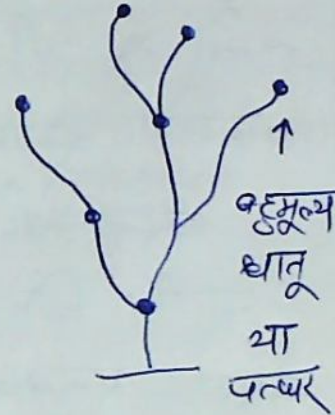 बहुमूल्य
धातू
या
पत्थर